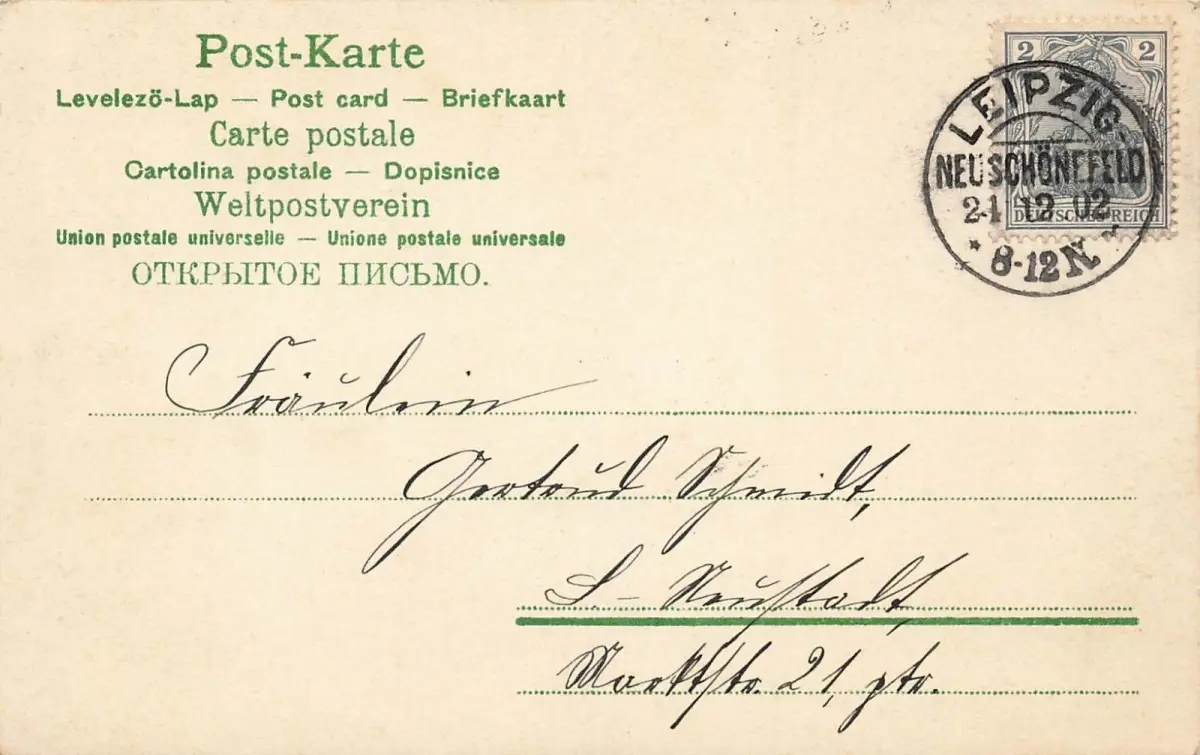 Post-Karte
Levelező-Lap — Post card — Briefkaart
Carte postale
Cartolina postale — Dopisnice
Weltpostverein
Union postale universelle — Unione postale universale
ОТКРЫТОЕ ПИСЬМО.
2 2
DEUTSCHES REICH
LEIPZIG-
NEUSCHÖNEFELD
24 12 02
* 8-12 N *
Fräulein
Gertrud Schmidt,
L.- Neustadt,
Marktstr. 21, ptr.